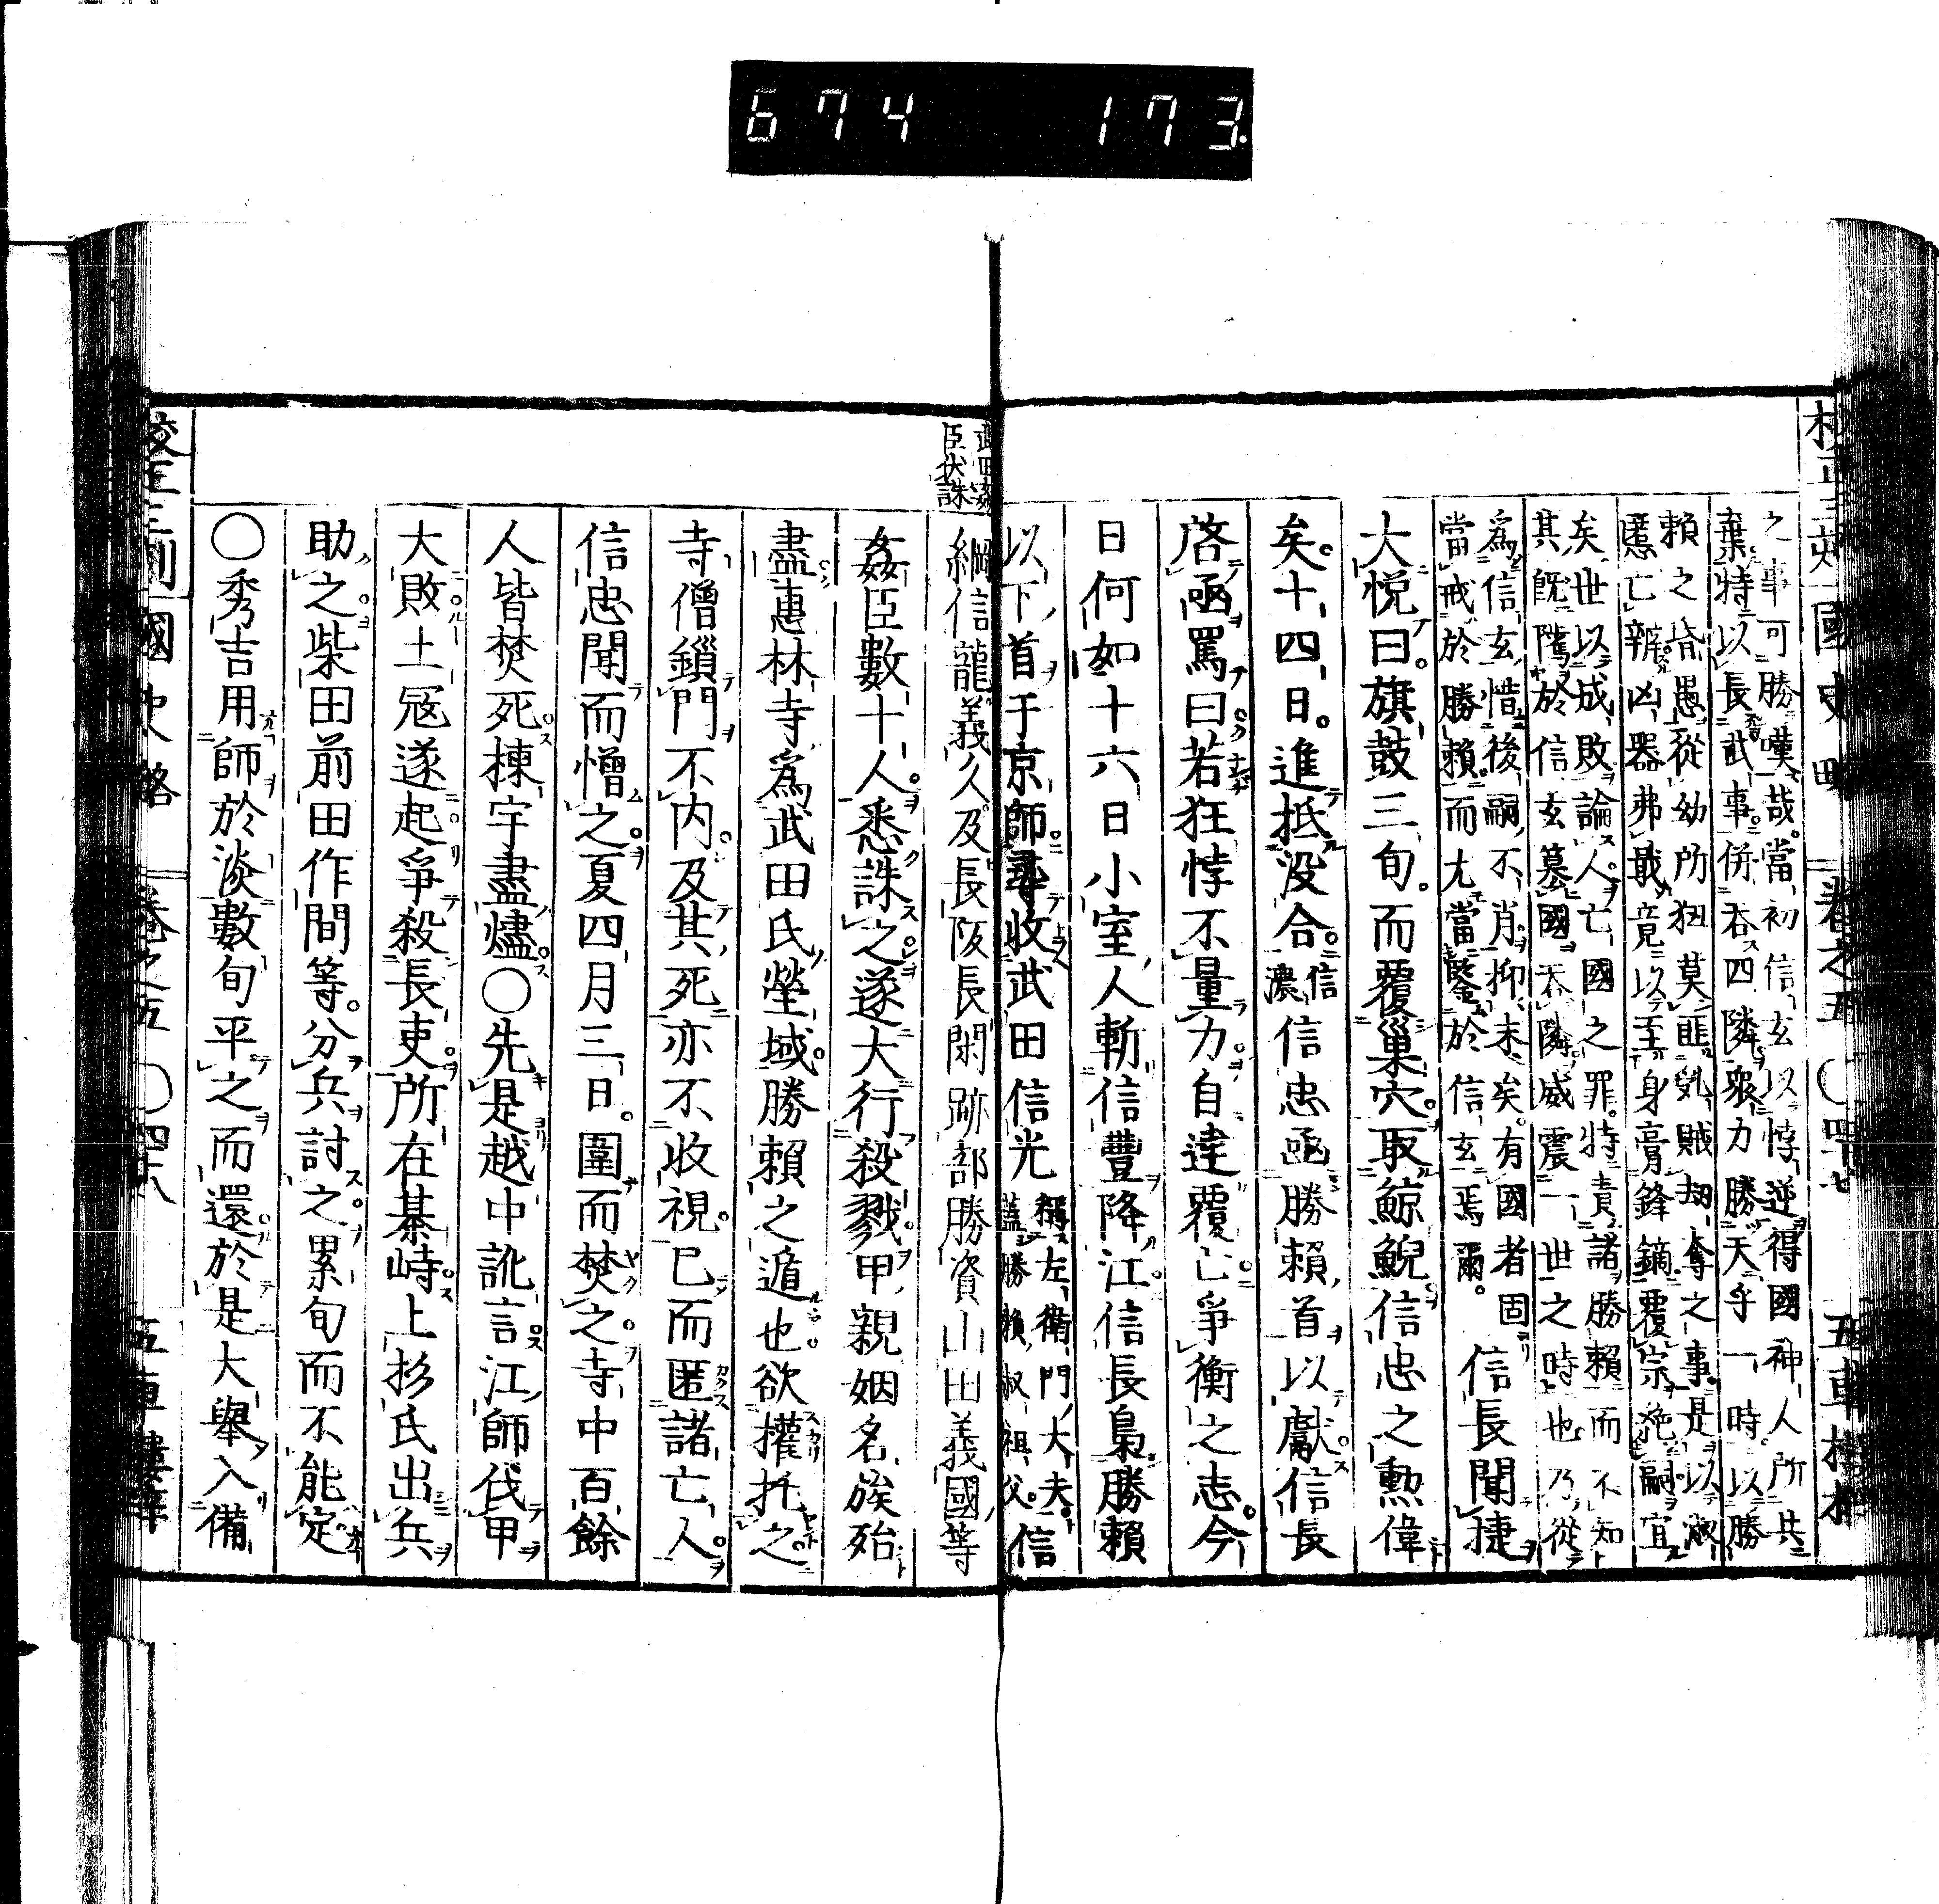 674 173
國史略 卷之五 〇四十七 五車樓梓
之事可勝嘆哉當初信玄以悖逆得國神人所共
棄特以長武事併吞四隣衆力勝天乎一時以勝
賴之昏愚從幼所狃莫匪乱賊刼奪之事是以淑
慝亡辧凶器弗戢竟以至身膏鋒鏑覆宗𫝑嗣宜
矣世以成敗論人亡國之罪特責諸勝賴而不知
其既隲於信玄墓國吞隣威震一世之時也乃從
爲信玄惜後嗣不肖抑末矣有國者固
當戒於勝賴而尤當鑒於信玄焉爾 信長聞捷
大悦曰旗鼓三旬而覆巢穴取鯨鯢信忠之勲偉
矣十四日進抵没合信濃信忠函勝賴首以獻信長
啓函罵曰若狂悖不量力自達覆亡爭衡之志今
日何如十六日小室人斬信豐降江信長梟勝賴
以下首于京師尋收武田信光稱左衛門大夫蓋勝賴叔祖父信
武田姦臣伏誅
綱信龍義久及長阪長閑跡部勝資山田義國等
姦臣數十人悉誅之遂大行殺戮甲親姻名族殆
盡惠林寺爲武田氏塋域勝賴之遁也欲權托之
寺僧鎻門不内及其死亦不收視已而匿諸亡人
信忠聞而憎之夏四月三日圍而焚之寺中百餘
人皆焚死棟宇盡燼〇先是越中訛言江師伐甲
大敗土冦遂起爭殺長吏所在棊峙上杉氏出兵
助之柴田前田作間等分兵討之累旬而不能定
〇秀吉用師於淡數旬平之而還於是大舉入備
國史略 卷之五 〇四十八 五車樓梓